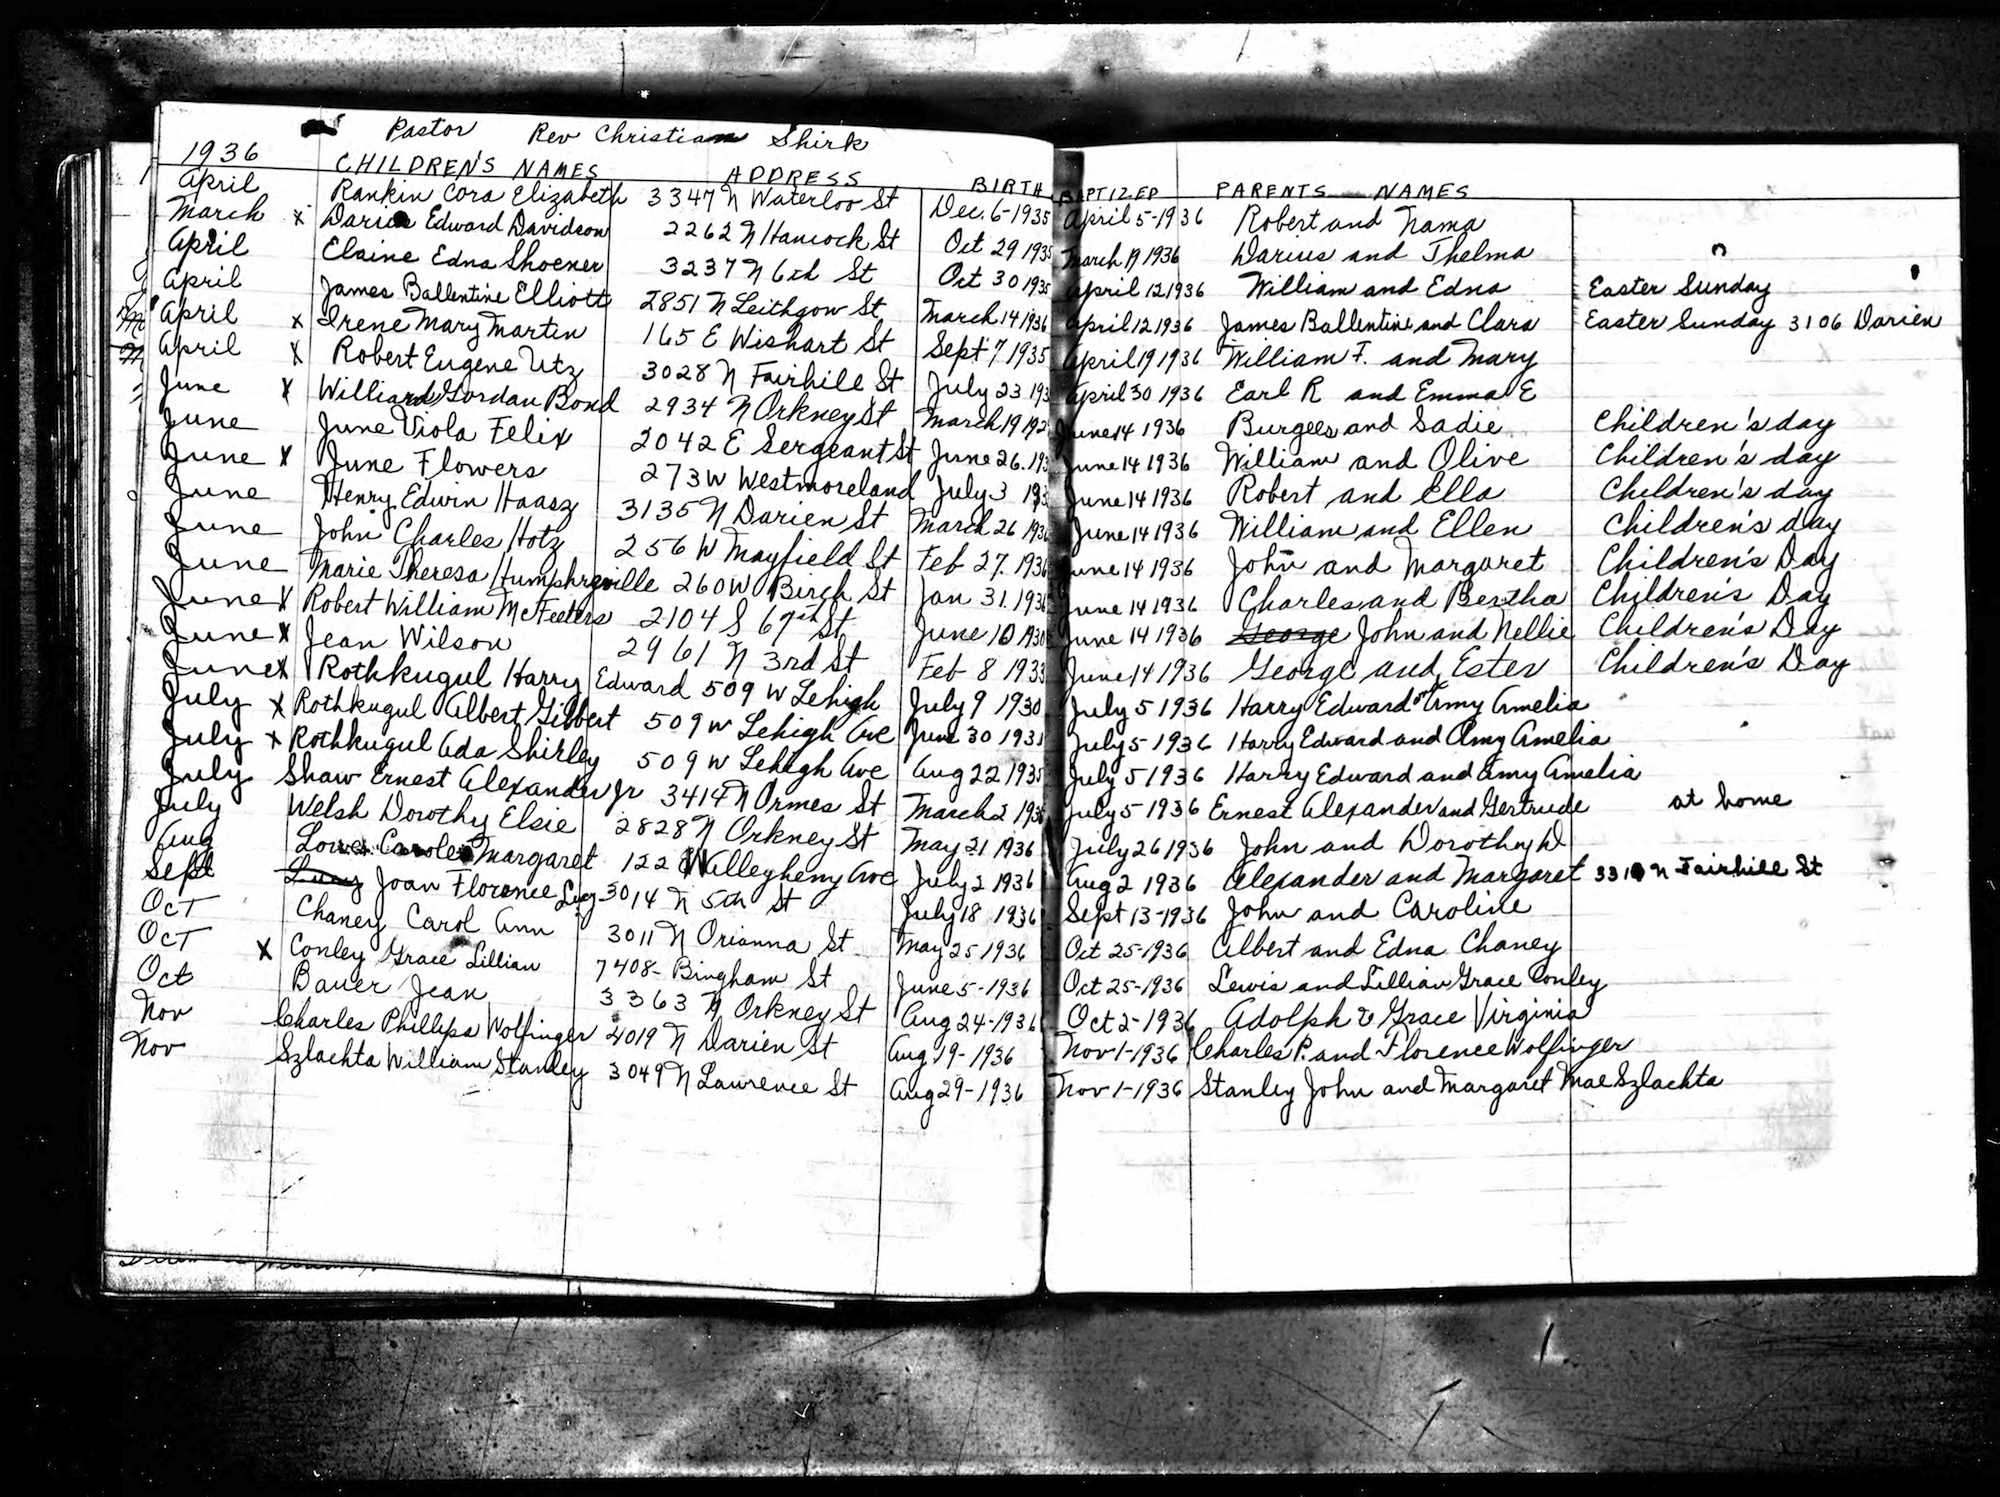 Pastor Rev Christian Shirk
1936 CHILDREN'S NAMES ADDRESS BIRTH BAPTIZED PARENTS NAMES
April Rankin Cora Elizabeth 3347 N Waterloo St Dec. 6-1935 April 5-1936 Robert and Nama
March x Darius Edward Davidson 2262 N Hancock St Oct 29 1935 March 19 1936 Darius and Thelma
April Elaine Edna Shoener 3237 N 6th St Oct 30 1935 April 12 1936 William and Edna Easter Sunday
April James Ballentine Elliott 2851 N Leithgow St March 14 1936 April 12 1936 James Ballentine and Clara Easter Sunday 3106 Darien
April x Irene Mary Martin 165 E Wishart St Sept 7 1935 April 19 1936 William F. and Mary
April x Robert Eugene Utz 3028 N Fairhill St July 23 193 April 30 1936 Earl R and Emma E
June x Willard Gordan Bond 2934 N Orkney St March 19 192 June 14 1936 Burgees and Sadie Children's day
June June Viola Felix 2042 E Sergeant St June 26. 193 June 14 1936 William and Olive Children's day
June x June Flowers 273 W Westmoreland July 3 193 June 14 1936 Robert and Ella Children's day
June Henry Edwin Haasz 3135 N Darien St March 26 1936 June 14 1936 William and Ellen Children's day
June John Charles Hotz 256 W Mayfield St Feb 27. 1936 June 14 1936 John and Margaret Children's Day
June Marie Theresa Humphreyville 260 W Birch St Jan 31. 1936 June 14 1936 Charles and Bertha Children's Day
June x Robert William McFeeters 2104 S 67th St June 10 1930 June 14 1936 George John and Nellie Children's Day
June x Jean Wilson 2961 N 3rd St Feb 8 1933 June 14 1936 George and Ester Children's Day
June x Rothkugul Harry Edward 509 W Lehigh July 9 1930 July 5 1936 Harry Edward and Amy Amelia
July x Rothkugul Albert Gilbert 509 W Lehigh Ave June 30 1931 July 5 1936 Harry Edward and Amy Amelia
July x Rothkugul Ada Shirley 509 W Lehigh Ave Aug 22 1935 July 5 1936 Harry Edward and Amy Amelia
July Shaw Ernest Alexander Jr 3414 N Ormes St March 2 1936 July 5 1936 Ernest Alexander and Gertrude at home
July Welsh Dorothy Elsie 2828 N Orkney St May 21 1936 July 26 1936 John and Dorothy D
Aug Lowe Carole Margaret 122 W Allegheny Ave July 2 1936 Aug 2 1936 Alexander and Margaret 3310 N Fairhill St
Sept Joan Florence 3014 N 5th St July 18 1936 Sept 13-1936 John and Caroline
Oct Chaney Carol Ann 3011 N Orianna St May 25 1936 Oct 25-1936 Albert and Edna Chaney
Oct x Conley Grace Lillian 7408- Bingham St June 5-1936 Oct 25-1936 Lewis and Lillian Grace Conley
Oct Bauer Jean 3363 N Orkney St Aug 24-1936 Oct 2-1936 Adolph & Grace Virginia
Nov Charles Phillips Wolfinger 4019 N Darien St Aug 19-1936 Nov-1-1936 Charles P. and Florence Wolfinger
Nov Szlachta William Stanley 3049 N Lawrence St Aug 29-1936 Nov 1-1936 Stanley John and Margaret Mae Szlachta